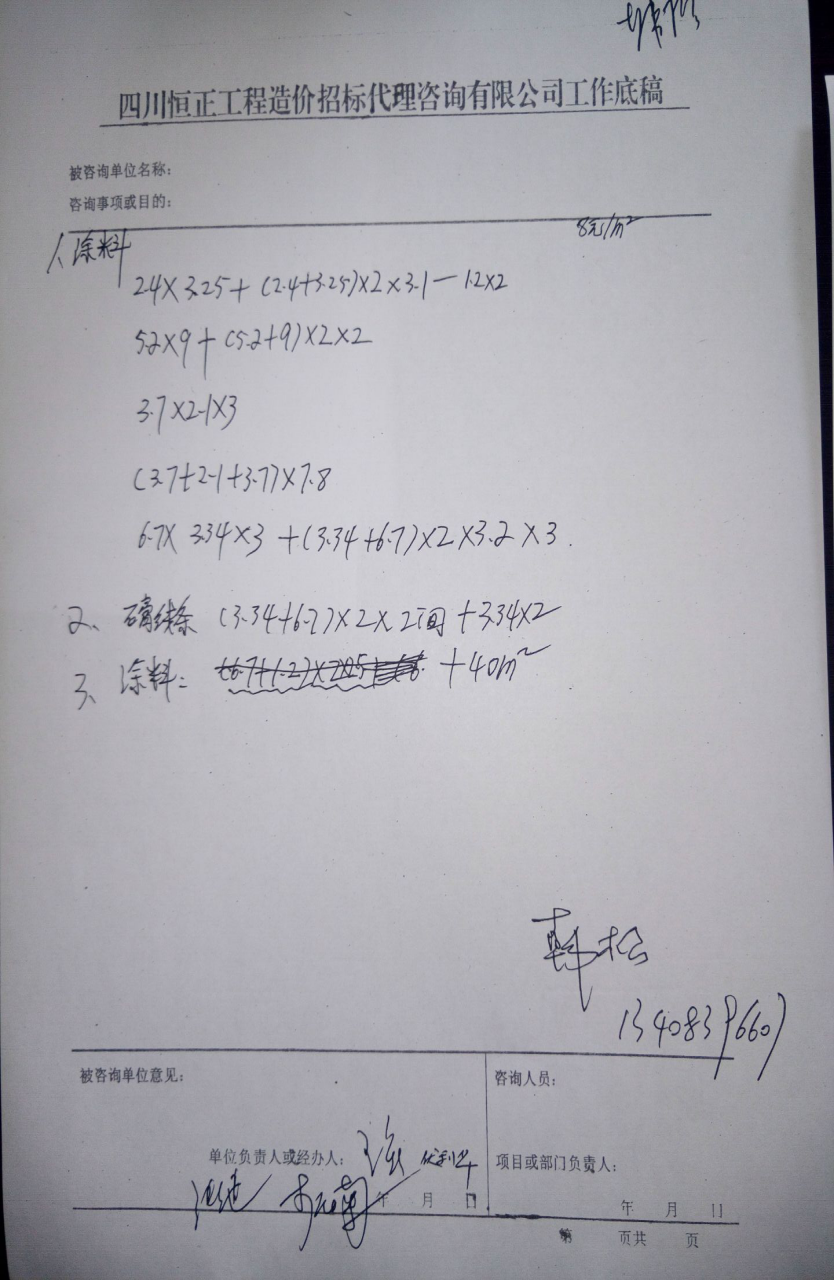 四川恒正工程造价招标代理咨询有限公司工作底稿
被咨询单位名称:
咨询事项或目的:
8元/m²
1、涂料
2.4×3.25+(2.4+3.25)×2×3.1-1.2×2
5.2×9+(5.2+9)×2×2
3.7×2.1×3
(3.7+2.1+3.7)×7.8
6.7×3.34×3+(3.34+6.7)×2×3.2×3.
2、膏线条 (3.34+6.7)×2×2间+3.34×2
3、涂料: +40m²
韩松
被咨询单位意见: 咨询人员:
单位负责人或经办人: 项目或部门负责人:
年 月 日 年 月 日
第 页共 页